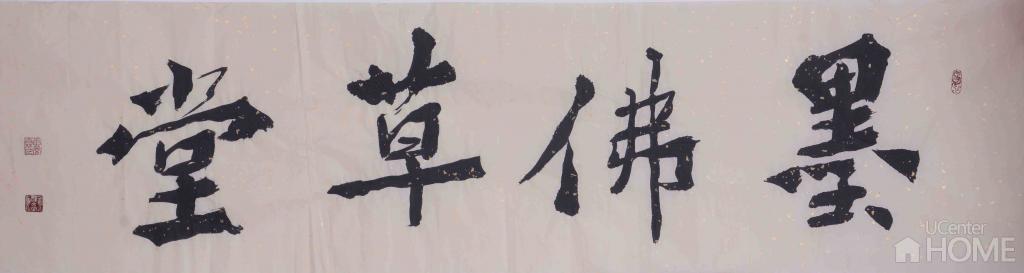 墨佛草堂
UCenter
HOME